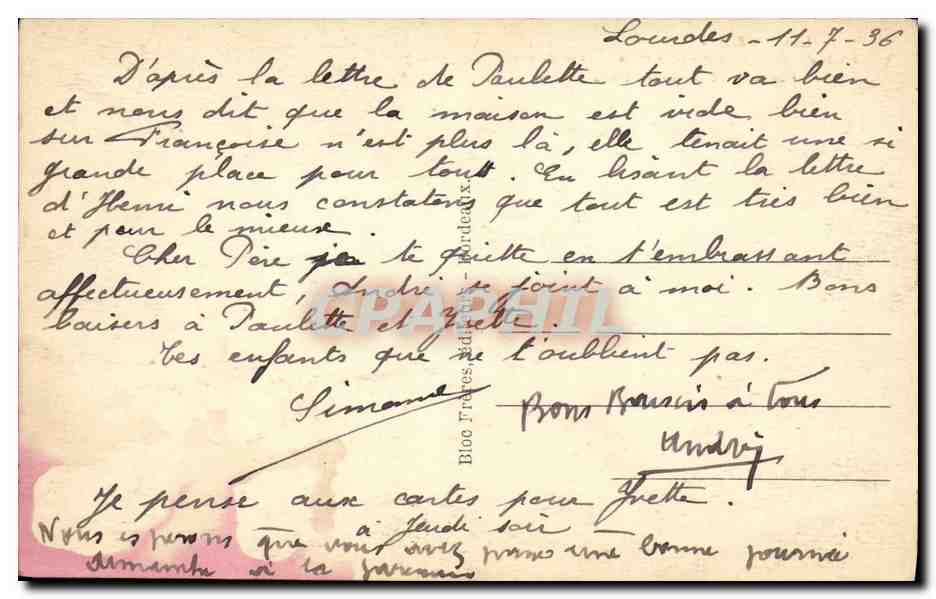 Lourdes - 11-7-36
D'après la lettre de Paulette tout va bien
et nous dit que la maison est vide bien
sur Françoise n'est plus là, elle tenait une si
grande place pour tout. En lisant la lettre
d'Henri nous constatons que tout est très bien
et pour le mieux.
Cher Père je te quitte en t'embrassant
affectueusement, André se joint à moi. Bons
baisers à Paulette et Yvette.
Tes enfants que ne t'oublient pas.
Simone
Bons Baisers à tous
André
Je pense aux cartes pour Yvette.
à Jeudi soir
Nous esperons que vous avez passé une bonne journée
dimanche à la
Bloc Frères, éditeurs - Bordeaux.
CPAPHIL